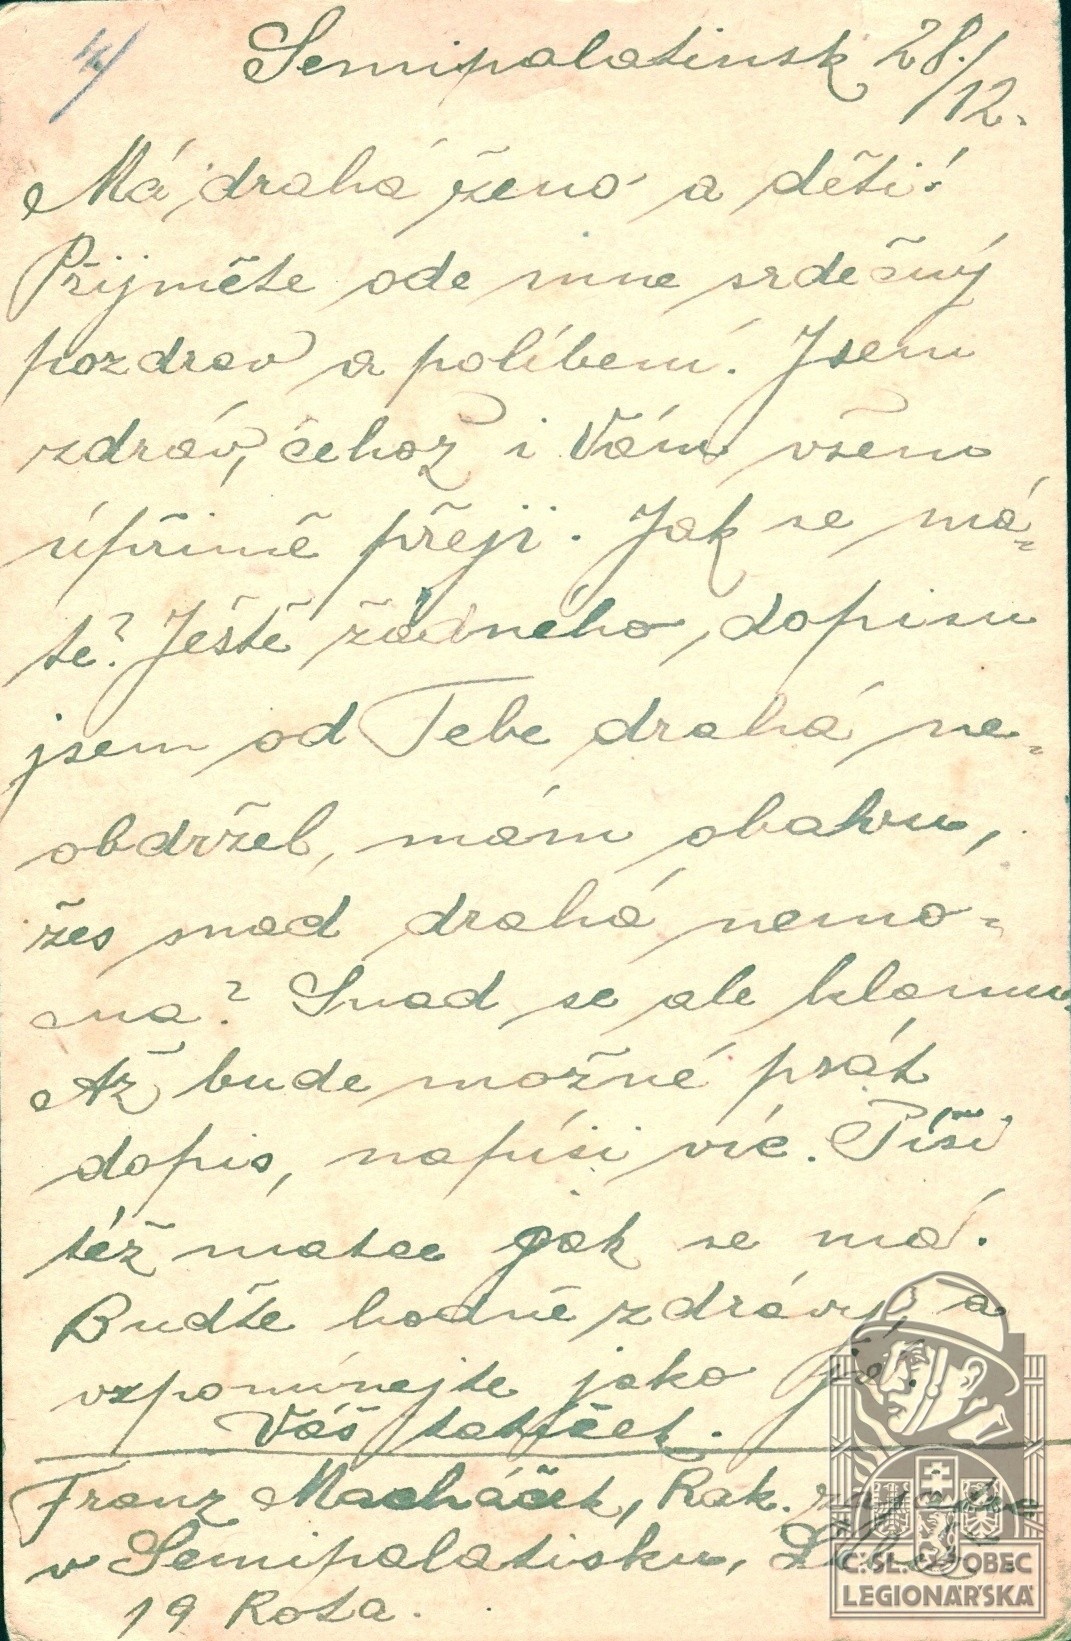 4/
Semipalatinsk 28./12.
Má drahá ženo a děti!
Přijměte ode mne srdečný
pozdrav a políbení. Jsem
zdráv, čehož i Vám všem
úpřimě přeji. Jak se má-
te? Ještě žádného dopisu
jsem od Tebe drahá ne-
obdržel, mám obavu,
žes snad drahá nemo-
cna? Snad se ale klamu.
Až bude možné psát
dopis, napíši víc. Piši
též matce jak se má.
Buďte hodně zdrávy, a
vzpomínejte jako já.
Váš tatíček.
Franz Macháček, Rak.
v Semipalatisku,
19 Rota.
ČSL. OBEC
LEGIONÁŘSKÁ